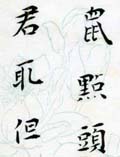 鼠點頭
君取但